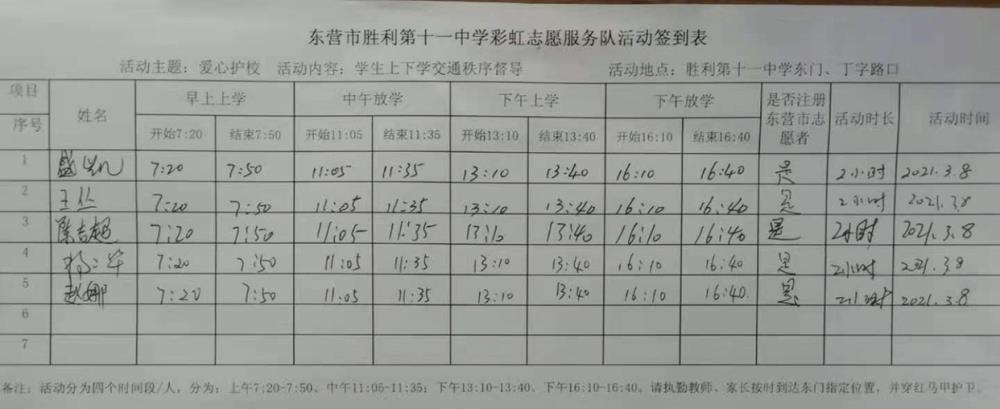 东营市胜利第十一中学彩虹志愿服务队活动签到表
活动主题：爱心护校 活动内容：学生上下学交通秩序督导 活动地点：胜利第十一中学东门、丁字路口
项目 序号 姓名 早上上学 中午放学 下午上学 下午放学 是否注册东营市志愿者 活动时长 活动时间
开始7:20 结束7:50 开始11:05 结束11:35 开始13:10 结束13:40 开始16:10 结束16:40
1 7:20 7:50 11:05 11:35 13:10 13:40 16:10 16:40 是 2小时 2021.3.8
2 王丛 7:20 7:50 11:05 11:35 13:10 13:40 16:10 16:40 是 2小时 2021.3.8
3 陈吉超 7:20 7:50 11:05 11:35 13:10 13:40 16:10 16:40 是 2小时 2021.3.8
4 7:20 7:50 11:05 11:35 13:10 13:40 16:10 16:40 是 2小时 2021.3.8
5 赵娜 7:20 7:50 11:05 11:35 13:10 13:40 16:10 16:40 是 2小时 2021.3.8
6
7
备注：活动分为四个时间段/人，分为：上午7:20-7:50、中午11:05-11:35；下午13:10-13:40、下午16:10-16:40。请执勤教师、家长按时到达东门指定位置，并穿红马甲护卫。